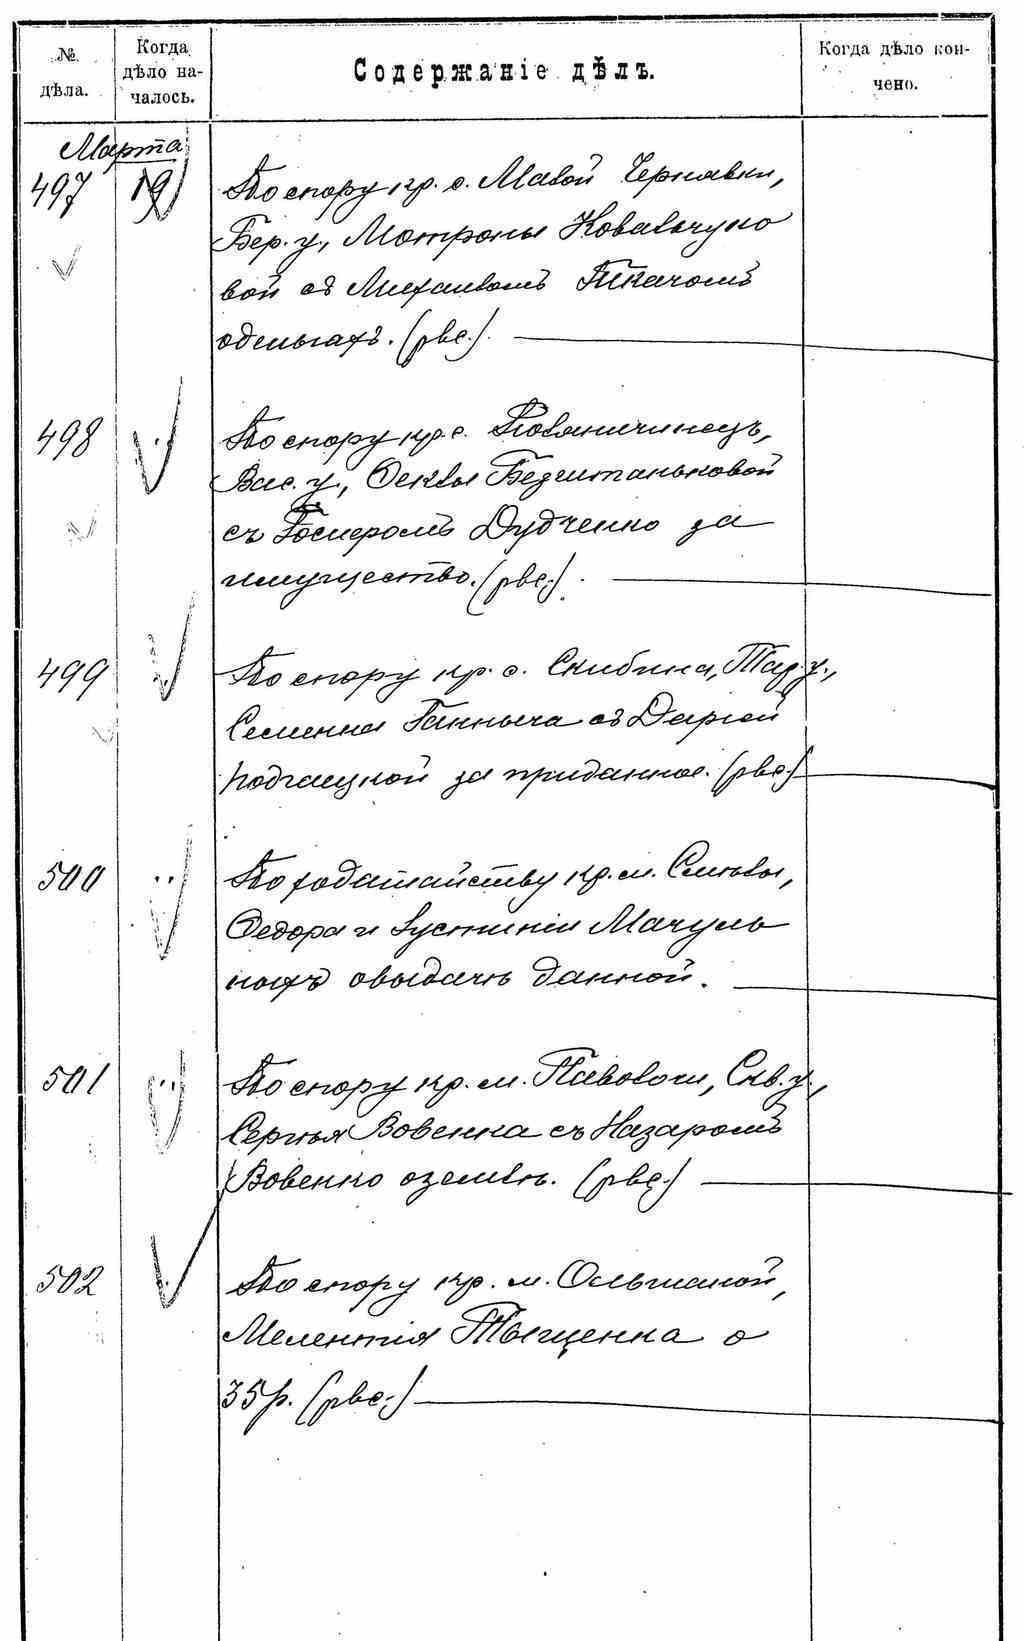 № дѣла.
Когда дѣло началось.
Содержаніе дѣлъ.
Когда дѣло кончено.
Марта
497 19 По спору кр. с. Малой Чернявки,
Бер. у., Мотроны Ковальчуко
вой съ Михаиломъ Ткачомъ
о деньгахъ. (рвс.)
498 По спору кр. с.
Вас. у., Феклы Безштаньковой
съ Дудченко за
имущество. (рвс.)
499 По спору кр. с. Скибина, Тар. у.,
Семена съ Дарьей
Подгаецкой за приданное. (рвс.)
500 По ходатайству кр. м. Смѣлы,
Федора и Іустиніи Мачуль
ныхъ о выдачѣ данной.
501 По спору кр. м. Паволочи, Скв. у.,
Сергѣя Вовенка съ Назаромъ
Вовенко о землѣ. (рвс.)
502 По спору кр. м. Ольшаной,
Мелентія Тыщенка о
35 р. (рвс.)